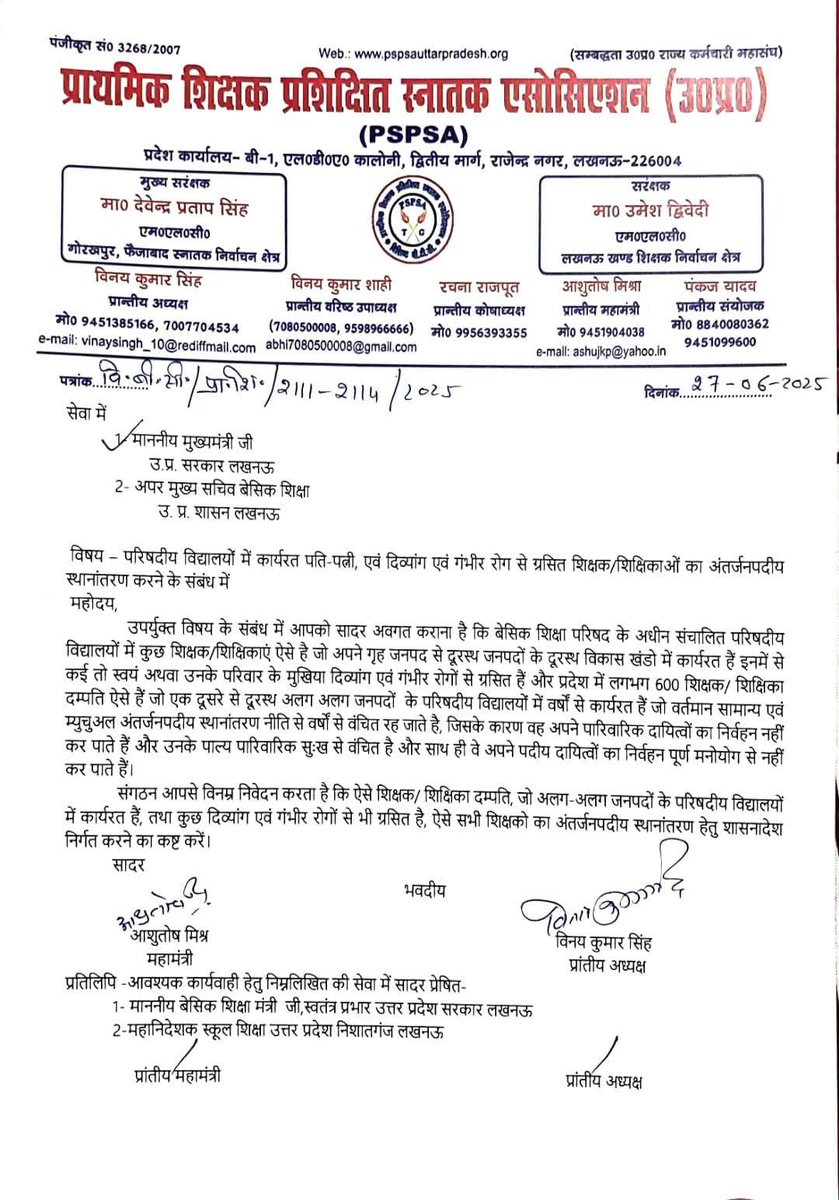 पंजीकृत सं0 3268/2007
Web.: www.pspsauttarpradesh.org
(सम्बद्धता उ0प्र0 राज्य कर्मचारी महासंघ)
प्राथमिक शिक्षक प्रशिक्षित स्नातक एसोसिएशन (उ0प्र0)
(PSPSA)
प्रदेश कार्यालय- बी-1, एल0डी0ए0 कालोनी, द्वितीय मार्ग, राजेन्द्र नगर, लखनऊ-226004
मुख्य सरंक्षक
मा0 देवेन्द्र प्रताप सिंह
एम0एल0सी0
गोरखपुर, फैजाबाद स्नातक निर्वाचन क्षेत्र
PSPSA
T G
सरंक्षक
मा0 उमेश द्विवेदी
एम0एल0सी0
लखनऊ खण्ड शिक्षक निर्वाचन क्षेत्र
विनय कुमार सिंह
प्रान्तीय अध्यक्ष
मो0 9451385166, 7007704534
e-mail: vinaysingh_10@rediffmail.com
विनय कुमार शाही
प्रान्तीय वरिष्ठ उपाध्यक्ष
(7080500008, 9598966666)
abhi7080500008@gmail.com
रचना राजपूत
प्रान्तीय कोषाध्यक्ष
मो0 9956393355
आशुतोष मिश्रा
प्रान्तीय महामंत्री
मो0 9451904038
e-mail: ashujkp@yahoo.in
पंकज यादव
प्रान्तीय संयोजक
मो0 8840080362
9451099600
पत्रांक वि.बी.सी./प्रा.शि./2111-2114/2025
दिनांक 27-06-2025
सेवा में
1- माननीय मुख्यमंत्री जी
उ.प्र. सरकार लखनऊ
2- अपर मुख्य सचिव बेसिक शिक्षा
उ. प्र. शासन लखनऊ
विषय – परिषदीय विद्यालयों में कार्यरत पति-पत्नी, एवं दिव्यांग एवं गंभीर रोग से ग्रसित शिक्षक/शिक्षिकाओं का अंतर्जनपदीय
स्थानांतरण करने के संबंध में
महोदय,
उपर्युक्त विषय के संबंध में आपको सादर अवगत कराना है कि बेसिक शिक्षा परिषद के अधीन संचालित परिषदीय
विद्यालयों में कुछ शिक्षक/शिक्षिकाएं ऐसे है जो अपने गृह जनपद से दूरस्थ जनपदों के दूरस्थ विकास खंडो में कार्यरत हैं इनमें से
कई तो स्वयं अथवा उनके परिवार के मुखिया दिव्यांग एवं गंभीर रोगों से ग्रसित हैं और प्रदेश में लगभग 600 शिक्षक/ शिक्षिका
दम्पति ऐसे हैं जो एक दूसरे से दूरस्थ अलग अलग जनपदों के परिषदीय विद्यालयों में वर्षो से कार्यरत हैं जो वर्तमान सामान्य एवं
म्युचुअल अंतर्जनपदीय स्थानांतरण नीति से वर्षों से वंचित रह जाते है, जिसके कारण वह अपने पारिवारिक दायित्वों का निर्वहन नहीं
कर पाते हैं और उनके पाल्य पारिवारिक सुःख से वंचित है और साथ ही वे अपने पदीय दायित्वों का निर्वहन पूर्ण मनोयोग से नहीं
कर पाते हैं।
संगठन आपसे विनम्र निवेदन करता है कि ऐसे शिक्षक/ शिक्षिका दम्पति, जो अलग-अलग जनपदों के परिषदीय विद्यालयों
में कार्यरत हैं, तथा कुछ दिव्यांग एवं गंभीर रोगों से भी ग्रसित है, ऐसे सभी शिक्षको का अंतर्जनपदीय स्थानांतरण हेतु शासनादेश
निर्गत करने का कष्ट करें।
सादर
भवदीय
आशुतोष मिश्र
महामंत्री
विनय कुमार सिंह
प्रांतीय अध्यक्ष
प्रतिलिपि -आवश्यक कार्यवाही हेतु निम्नलिखित की सेवा में सादर प्रेषित-
1- माननीय बेसिक शिक्षा मंत्री जी,स्वतंत्र प्रभार उत्तर प्रदेश सरकार लखनऊ
2-महानिदेशक स्कूल शिक्षा उत्तर प्रदेश निशातगंज लखनऊ
प्रांतीय महामंत्री
प्रांतीय अध्यक्ष